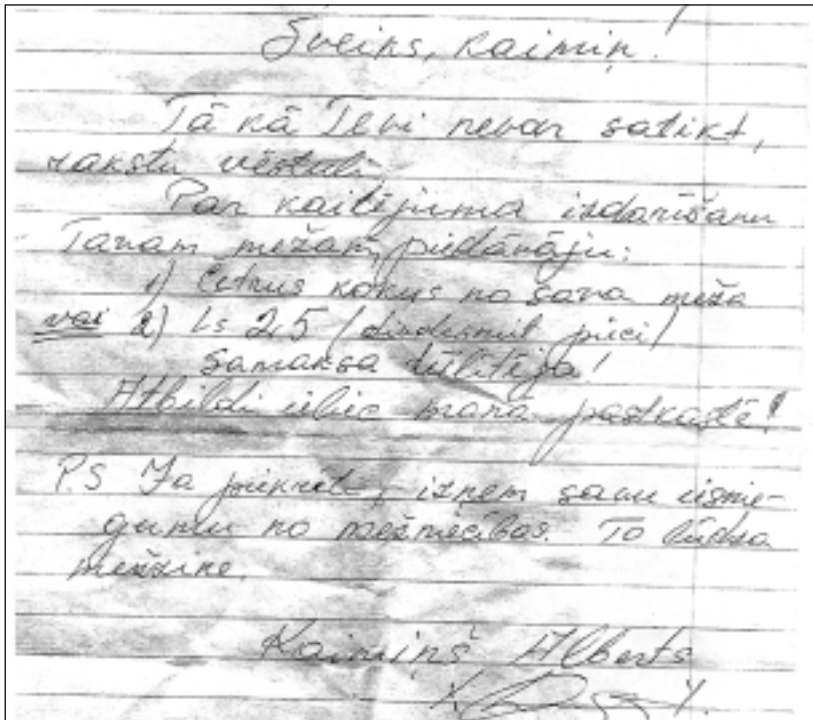 Sveiks, kaimiņ!
Tā kā Tevi nevar satikt,
rakstu vēstuli.
Par kaitējuma izdarīšanu
Tavam mežam, piedāvāju:
1) Četrus kokus no sava meža
vai 2) Ls 25 /divdesmit pieci/
Samaksa tūlītēja!
Atbildi iebiec manā pastkastē!
P.S Ja piekrīti, izņem savu iesnie-
gumu no mežniecības. To lūdza
mežzine.
Kaimiņš Alberts